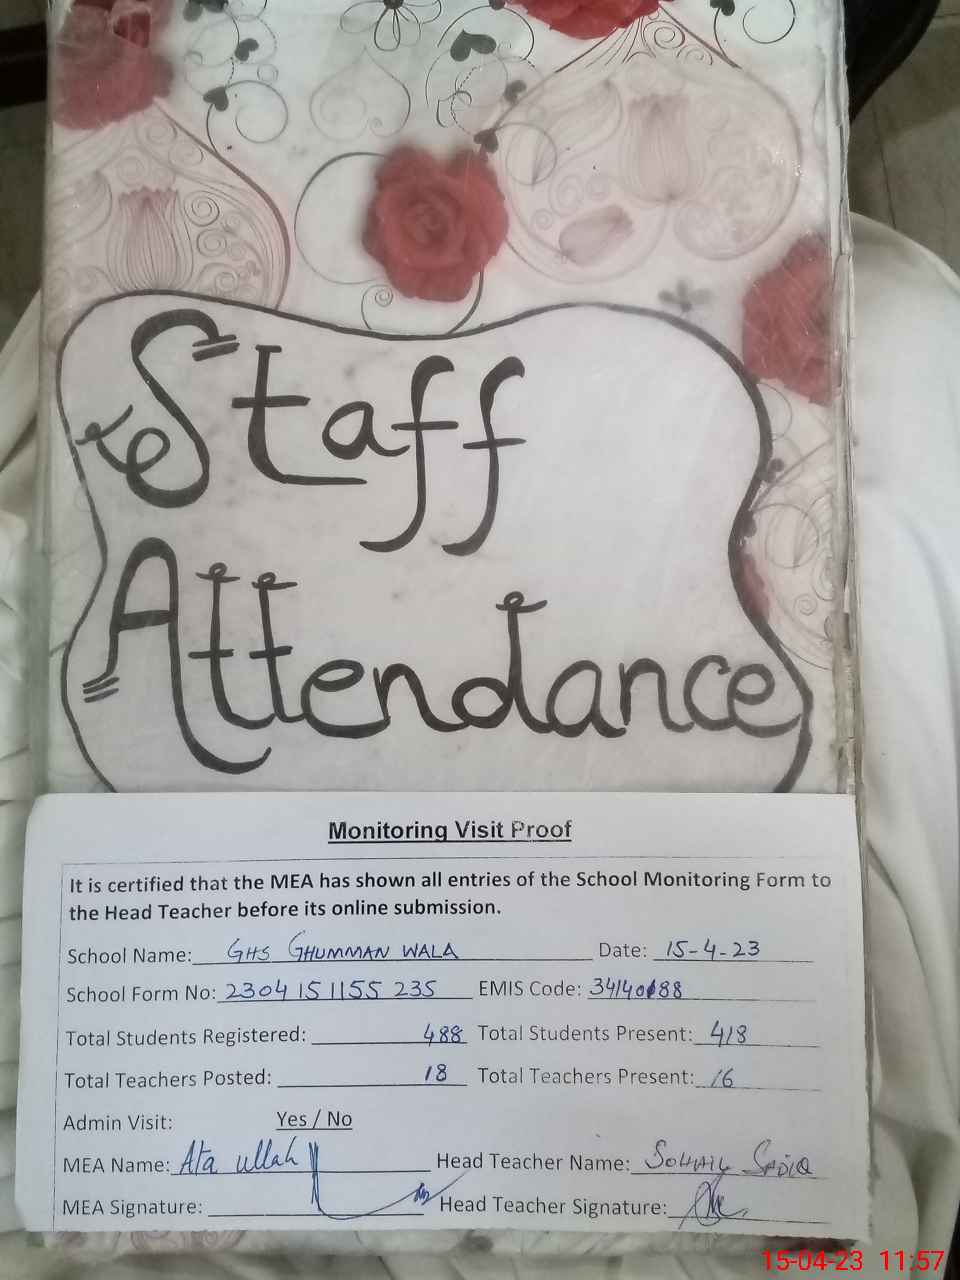 Staff
Attendance
Monitoring Visit Proof
It is certified that the MEA has shown all entries of the School Monitoring Form to
the Head Teacher before its online submission.
School Name: GHS GHUMMAN WALA Date: 15-4-23
School Form No: 2304 15 1155 235 EMIS Code: 34140188
Total Students Registered: 488 Total Students Present: 418
Total Teachers Posted: 18 Total Teachers Present: 16
Admin Visit: Yes / No
MEA Name: Ata ullah Head Teacher Name: SOHAIL SADIQ
MEA Signature: Head Teacher Signature:
15-04-23 11:57